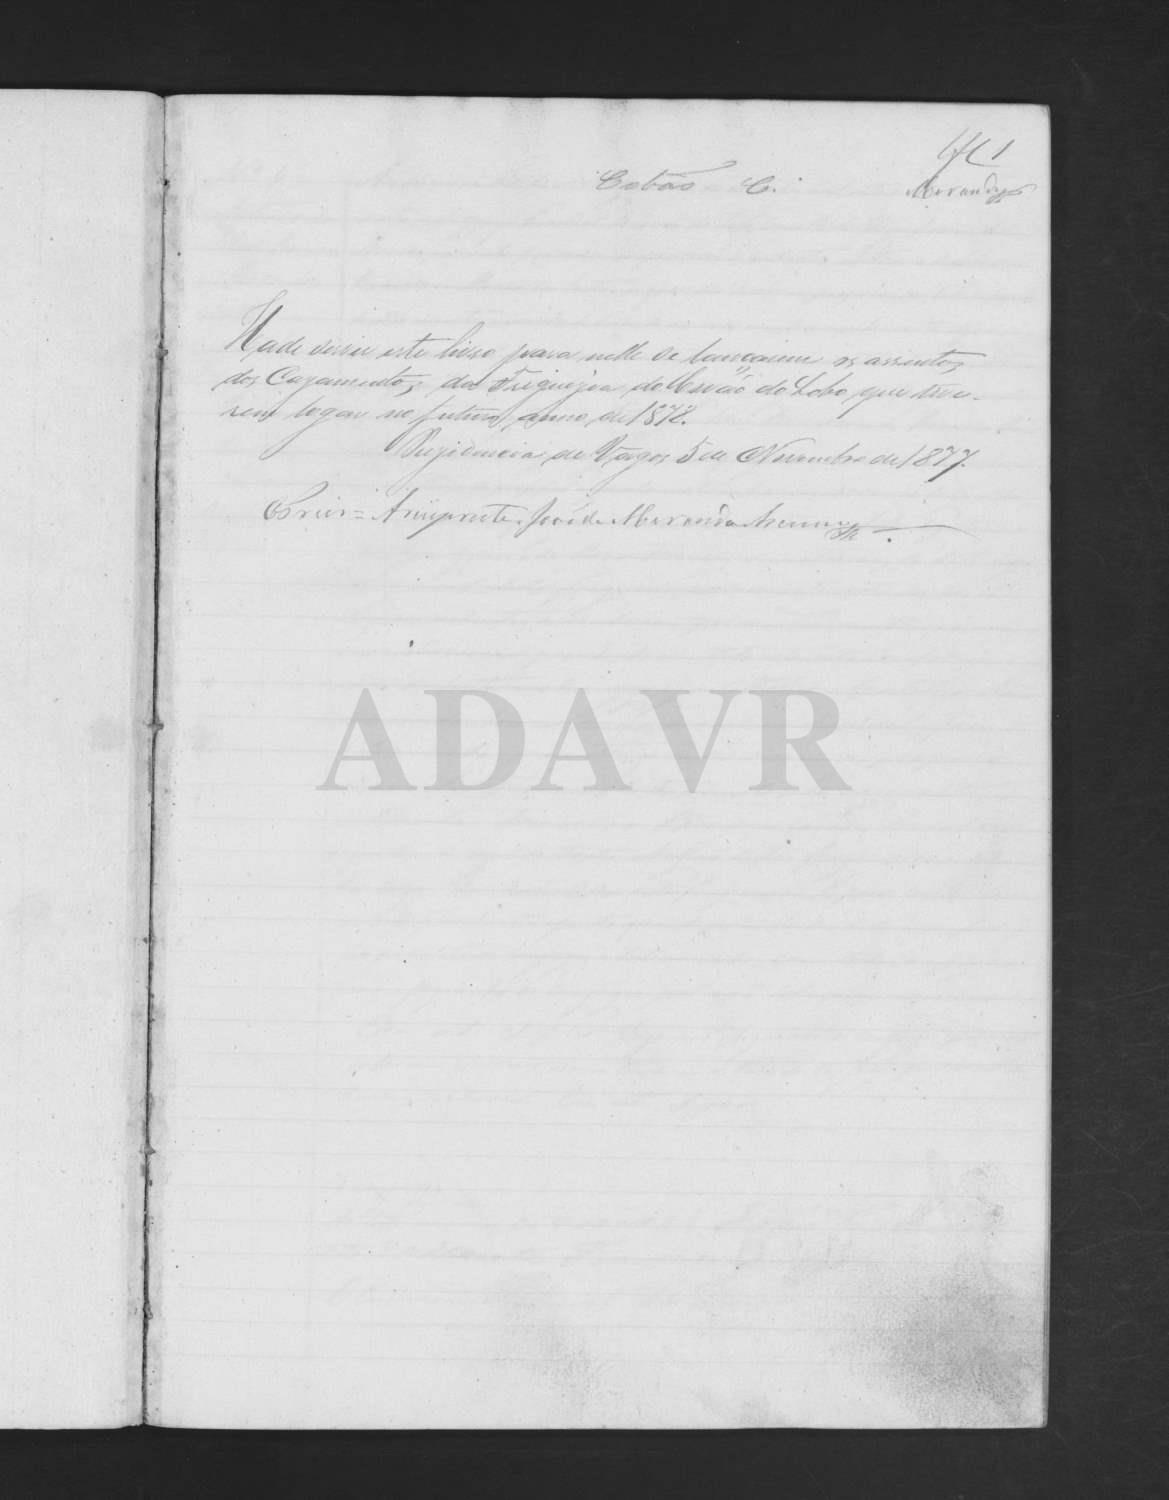 fl 1
Covão C.
Miranda
Hade servir este livro para nelle se lançarem os assentos
dos Cazamentos, da Freiguezia do Covão do Lobo, que tive-
rem logar no futuro anno, de 1878.
Rezidencia de Vagos 5 de Novembro de 1877.
O Prior = Arcipreste, José de Miranda Ascenso
ADAVR